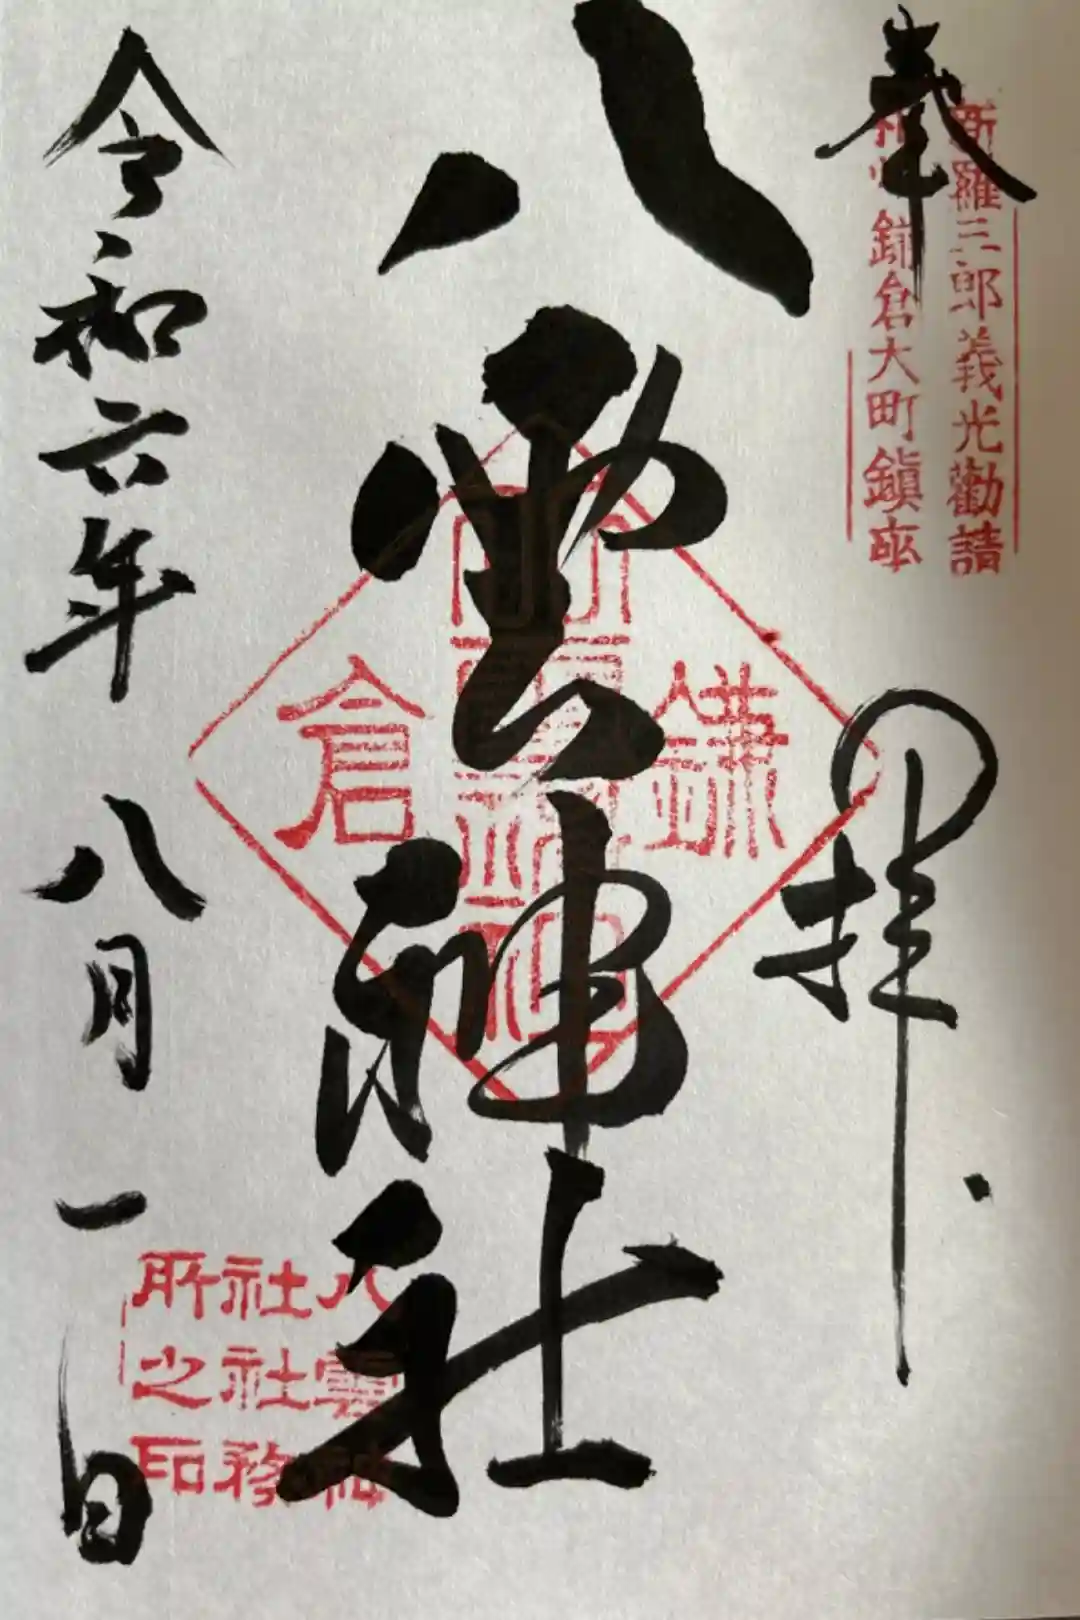 奉拝
新羅三郎義光勧請
相州鎌倉大町鎮座
八雲神社
鎌倉
八雲神社社務所之印
令和六年八月一日